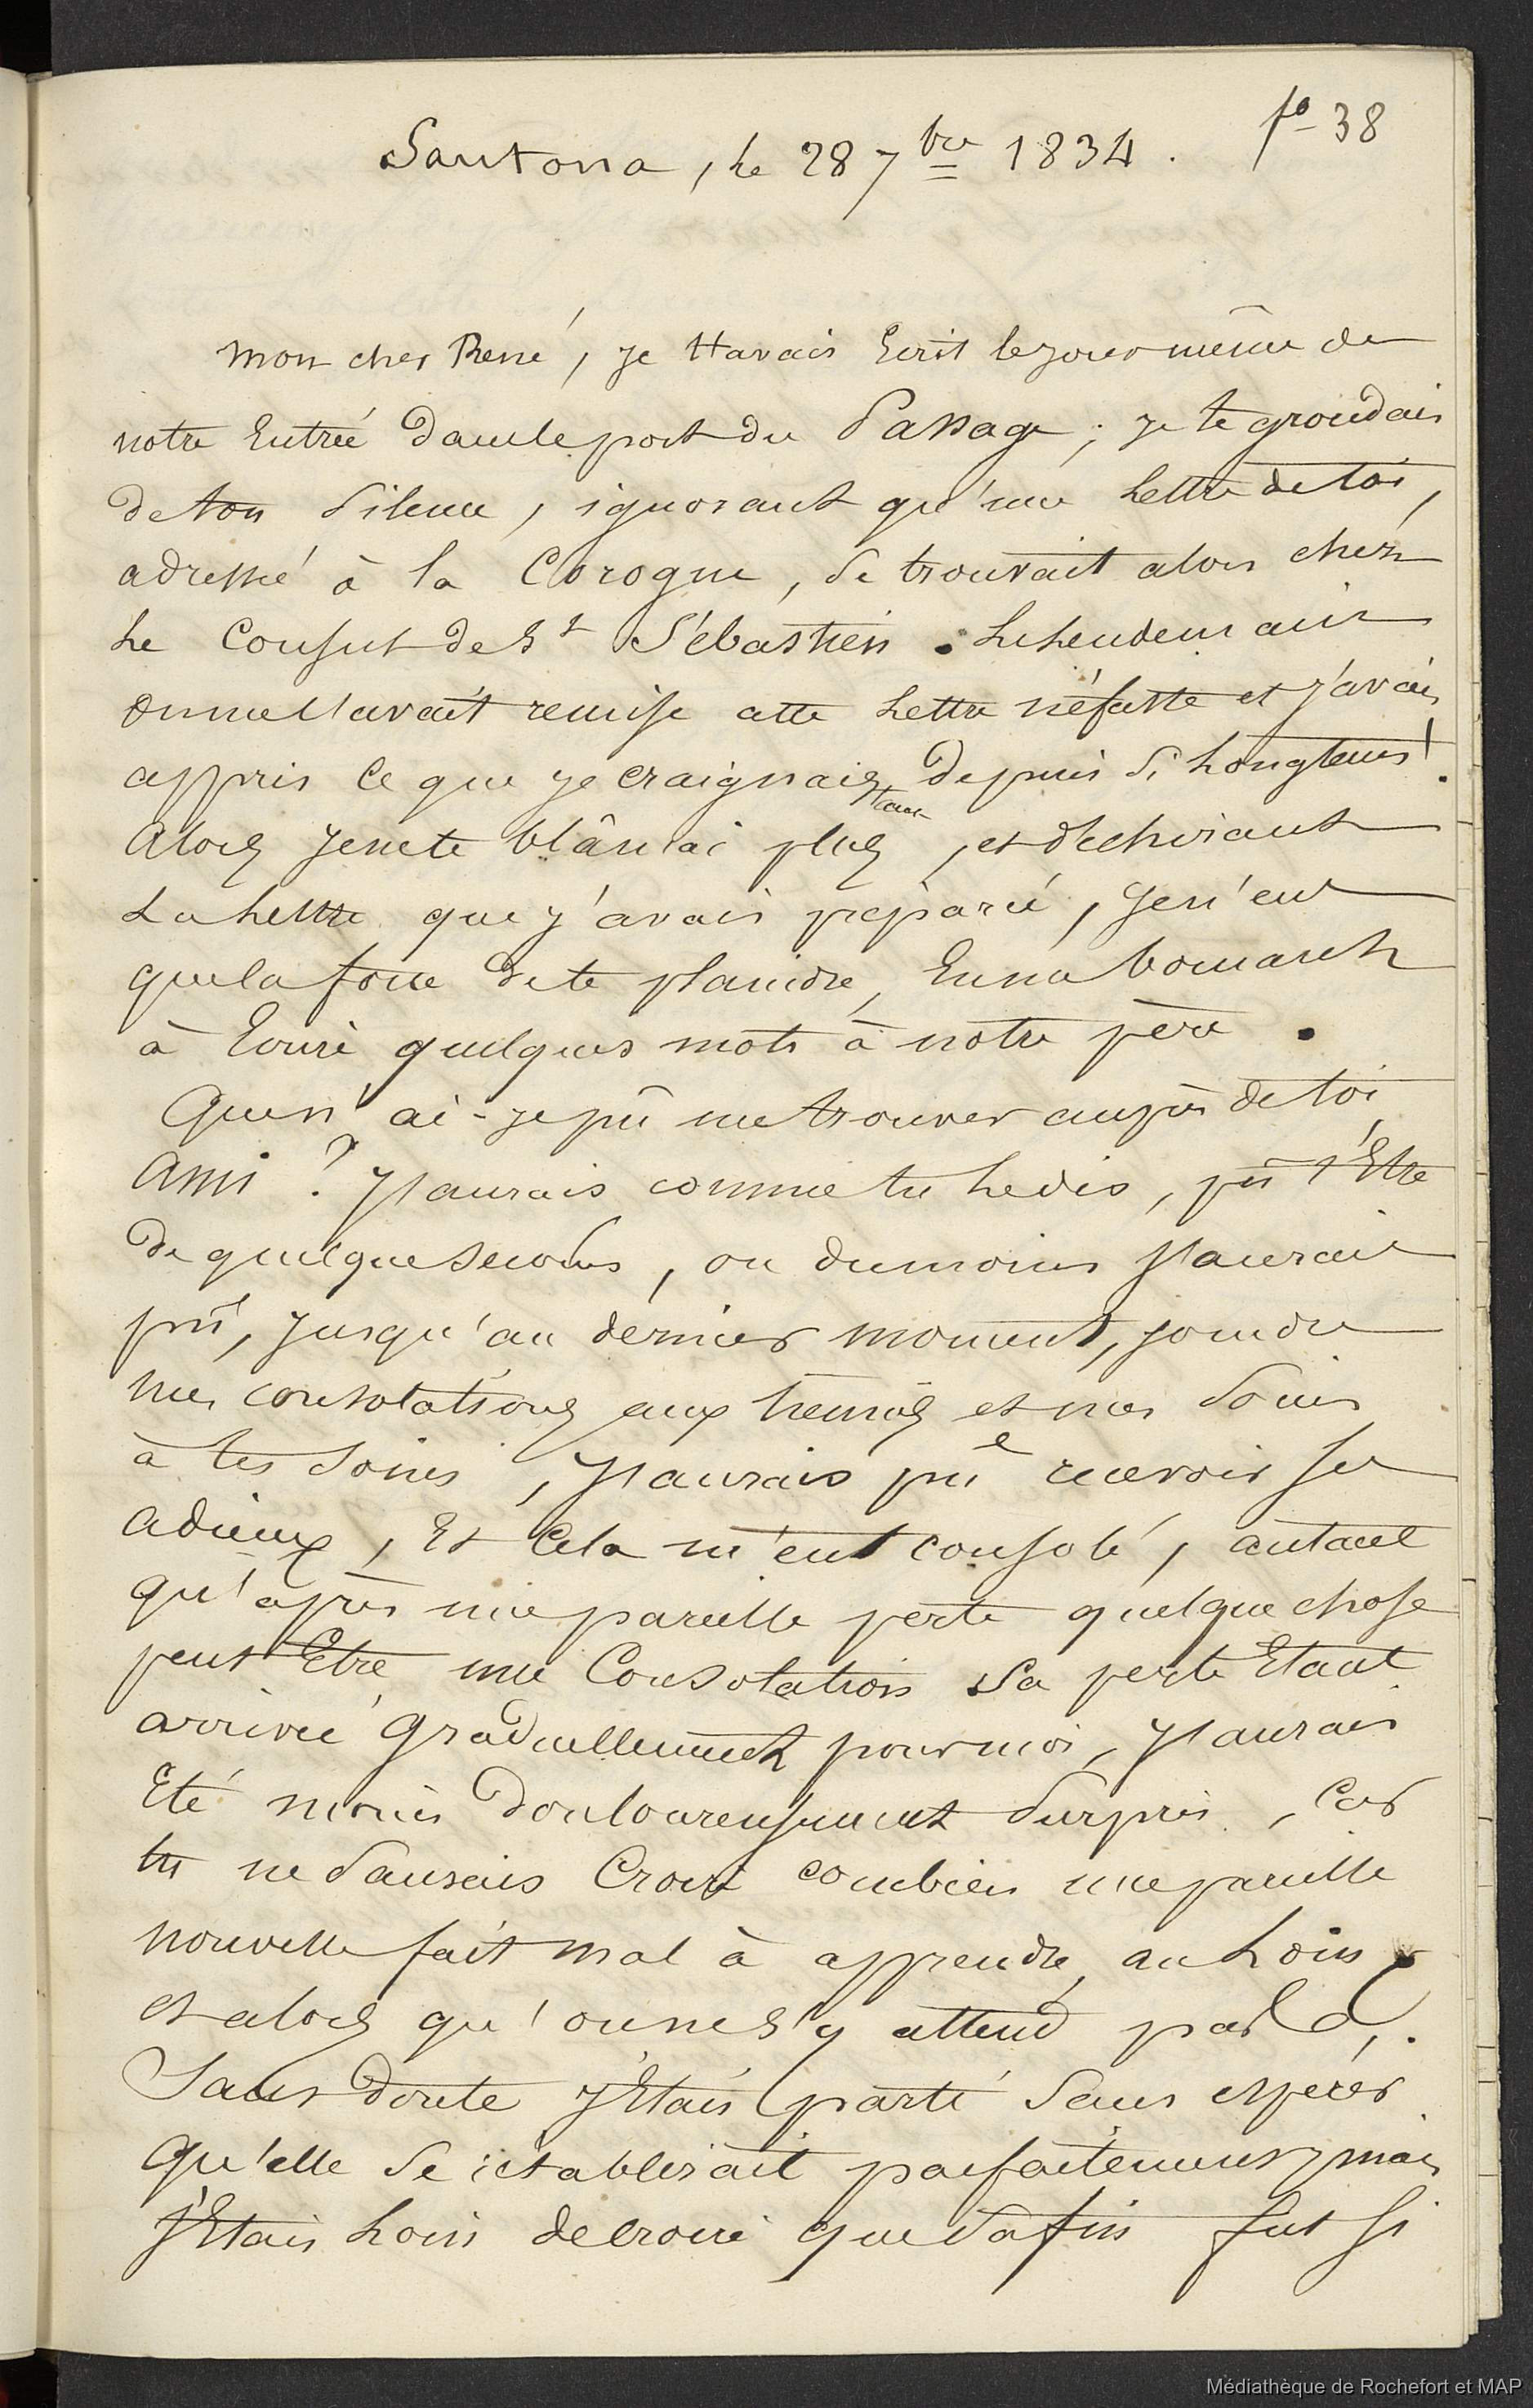 fo 38
Santona, le 28 7bre 1834.
Mon cher René, je t'avais Ecrit le jour même de
notre Entrée dans le port du Passage ; je te grondais
de ton silence, ignorant qu'une lettre de toi,
adressée à la Corogne, se trouvait alors chez
le Consul de St Sébastien. Le lendemain
on me l'avait remise cette lettre néfaste et j'avais
appris ce que je craignais depuis si longtems !.
Alors je ne te blâmai plus, et déchirant
la lettre que j'avais préparée, je n'eus
que la force de te plaindre, En me bornant
à Ecrire quelques mots à notre père.
Que n'ai-je pû me trouver auprès de toi
Ami ? J'aurais comme tu le dis, pû t'Etre
de quelque secours, ou du moins j'aurais
pû, jusqu'au dernier moment, joindre
mes consolations aux tiennes et mes soins
à tes soins, J'aurais pû recevoir ses
adieux, Et Cela m'eut consolé, autant
qu'après une pareille perte quelque chose
peut Etre une Consolation sa perte Etant
arrivée graduellement pour moi, J'aurais
Eté moins douloureusement surpris, Car
tu ne saurais Croire combien une pareille
nouvelle fait mal à apprendre, au loin
et alors qu'on ne s'y attend pas.
Sans doute j'Etais parti sans espérer
qu'elle se rétablirait parfaitement, mais
j'Etais loin de croire que sa fin fut si
Médiathèque de Rochefort et MAP